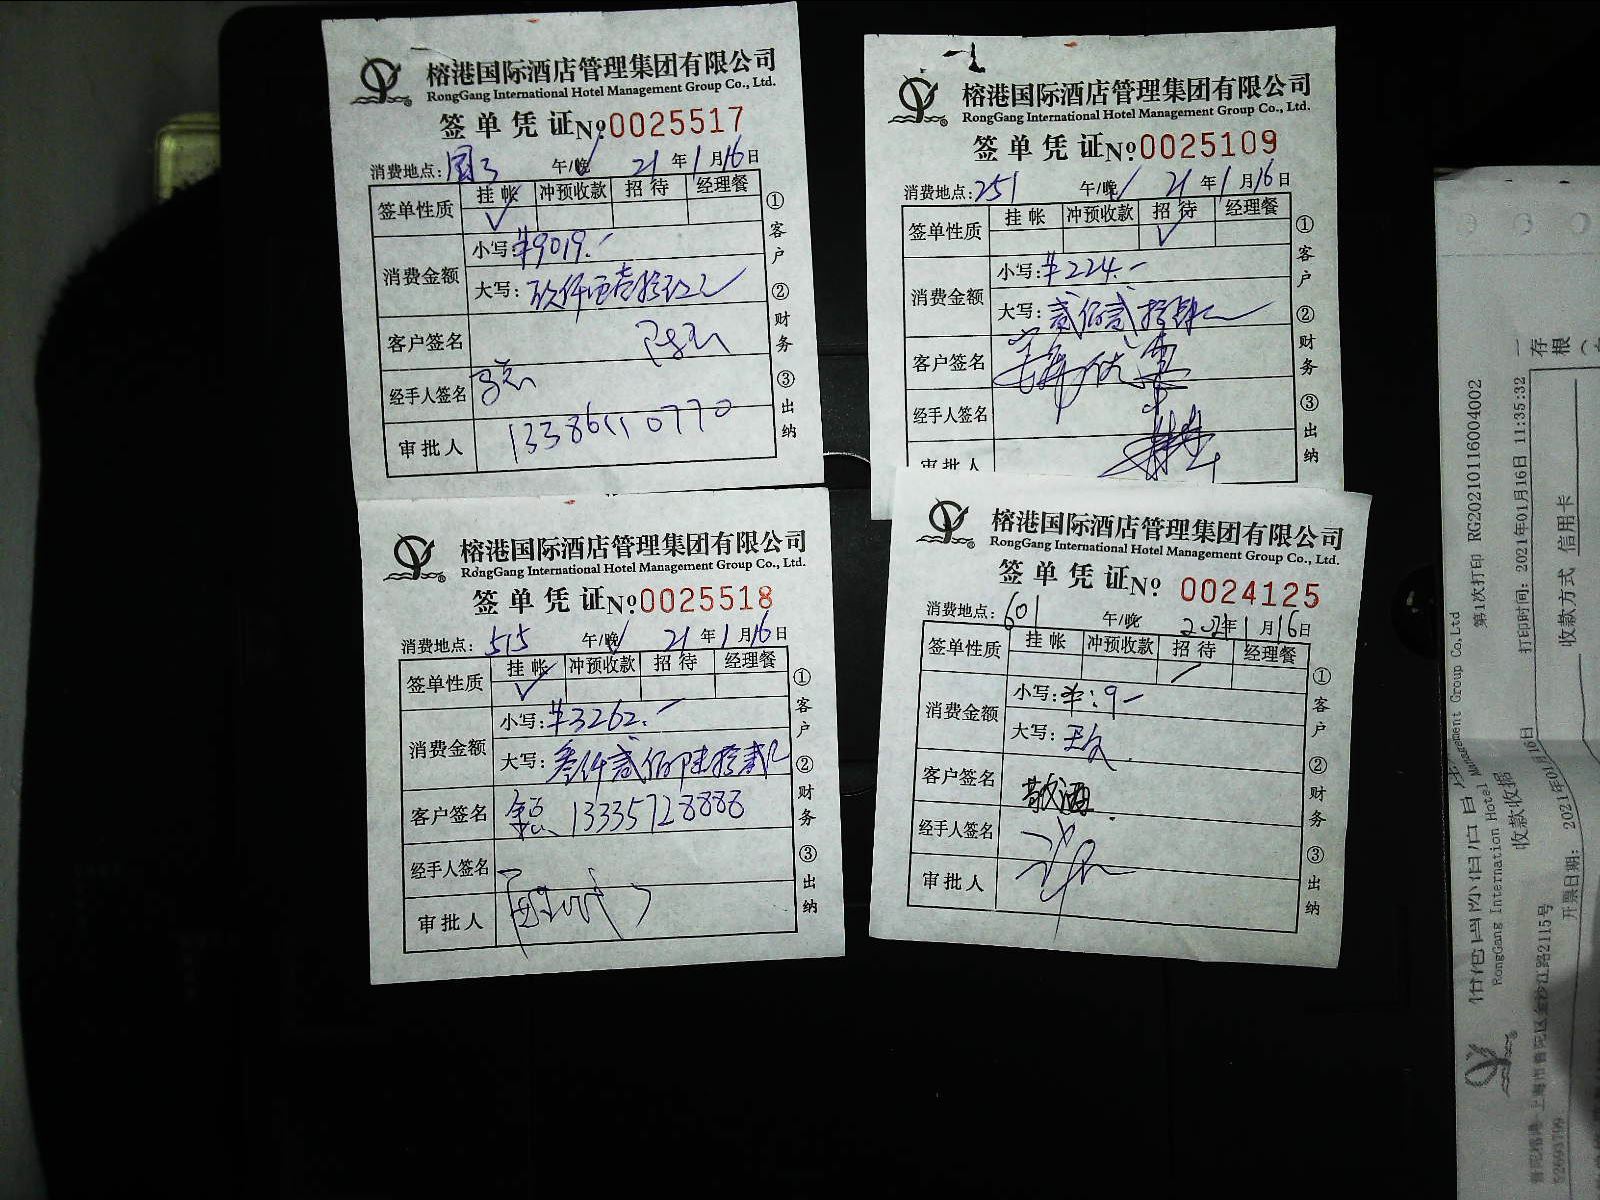 榕港国际酒店管理集团有限公司
RongGang International Hotel Management Group Co., Ltd.
签单凭证No.0025517
消费地点: 国3 午/晚 21年1月16日
签单性质 挂帐 冲预收款 招待 经理餐
消费金额
小写: ¥9019.-
大写: 玖仟零壹拾玖元
客户签名
经手人签名
审批人 13386110770
①客户 ②财务 ③出纳
榕港国际酒店管理集团有限公司
RongGang International Hotel Management Group Co., Ltd.
签单凭证No.0025109
消费地点: 251 午/晚 21年1月16日
签单性质 挂帐 冲预收款 招待 经理餐
消费金额
小写: ¥224.-
大写: 贰佰贰拾肆元
客户签名
经手人签名
审批人
①客户 ②财务 ③出纳
榕港国际酒店管理集团有限公司
RongGang International Hotel Management Group Co., Ltd.
签单凭证No.0025518
消费地点: 515 午/晚 21年1月16日
签单性质 挂帐 冲预收款 招待 经理餐
消费金额
小写: ¥3262.-
大写: 叁仟贰佰陆拾贰元
客户签名 13335728888
经手人签名
审批人
①客户 ②财务 ③出纳
榕港国际酒店管理集团有限公司
RongGang International Hotel Management Group Co., Ltd.
签单凭证No. 0024125
消费地点: 601 午/晚 2021年1月16日
签单性质 挂帐 冲预收款 招待 经理餐
消费金额
小写: ¥:9-
大写:
客户签名 敬酒
经手人签名
审批人
①客户 ②财务 ③出纳
RongGang Internation Hotel Management Group Co.,Ltd
第1次打印 RG20210116004002
收款收据
打印时间: 2021年01月16日 11:35:32
开票日期: 2021年01月16日
收款方式 信用卡
存根
上海市普陀区金沙江路2115号
52693799